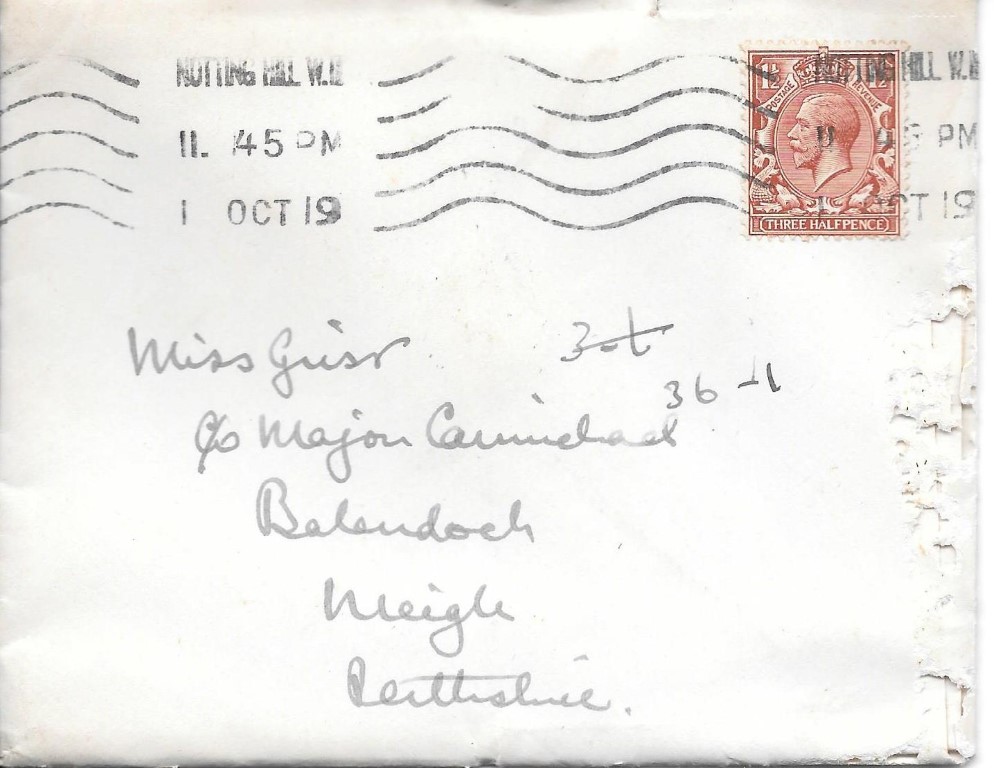 NOTTING HILL W.11
11.45 PM
1 OCT 19
NOTTING HILL W.11
11.45 PM
1 OCT 19
1½ 1½
POSTAGE REVENUE
THREE HALFPENCE
Miss
36 -1
c/o Major Carmichael
Balendoch
Meigle
Perthshire.